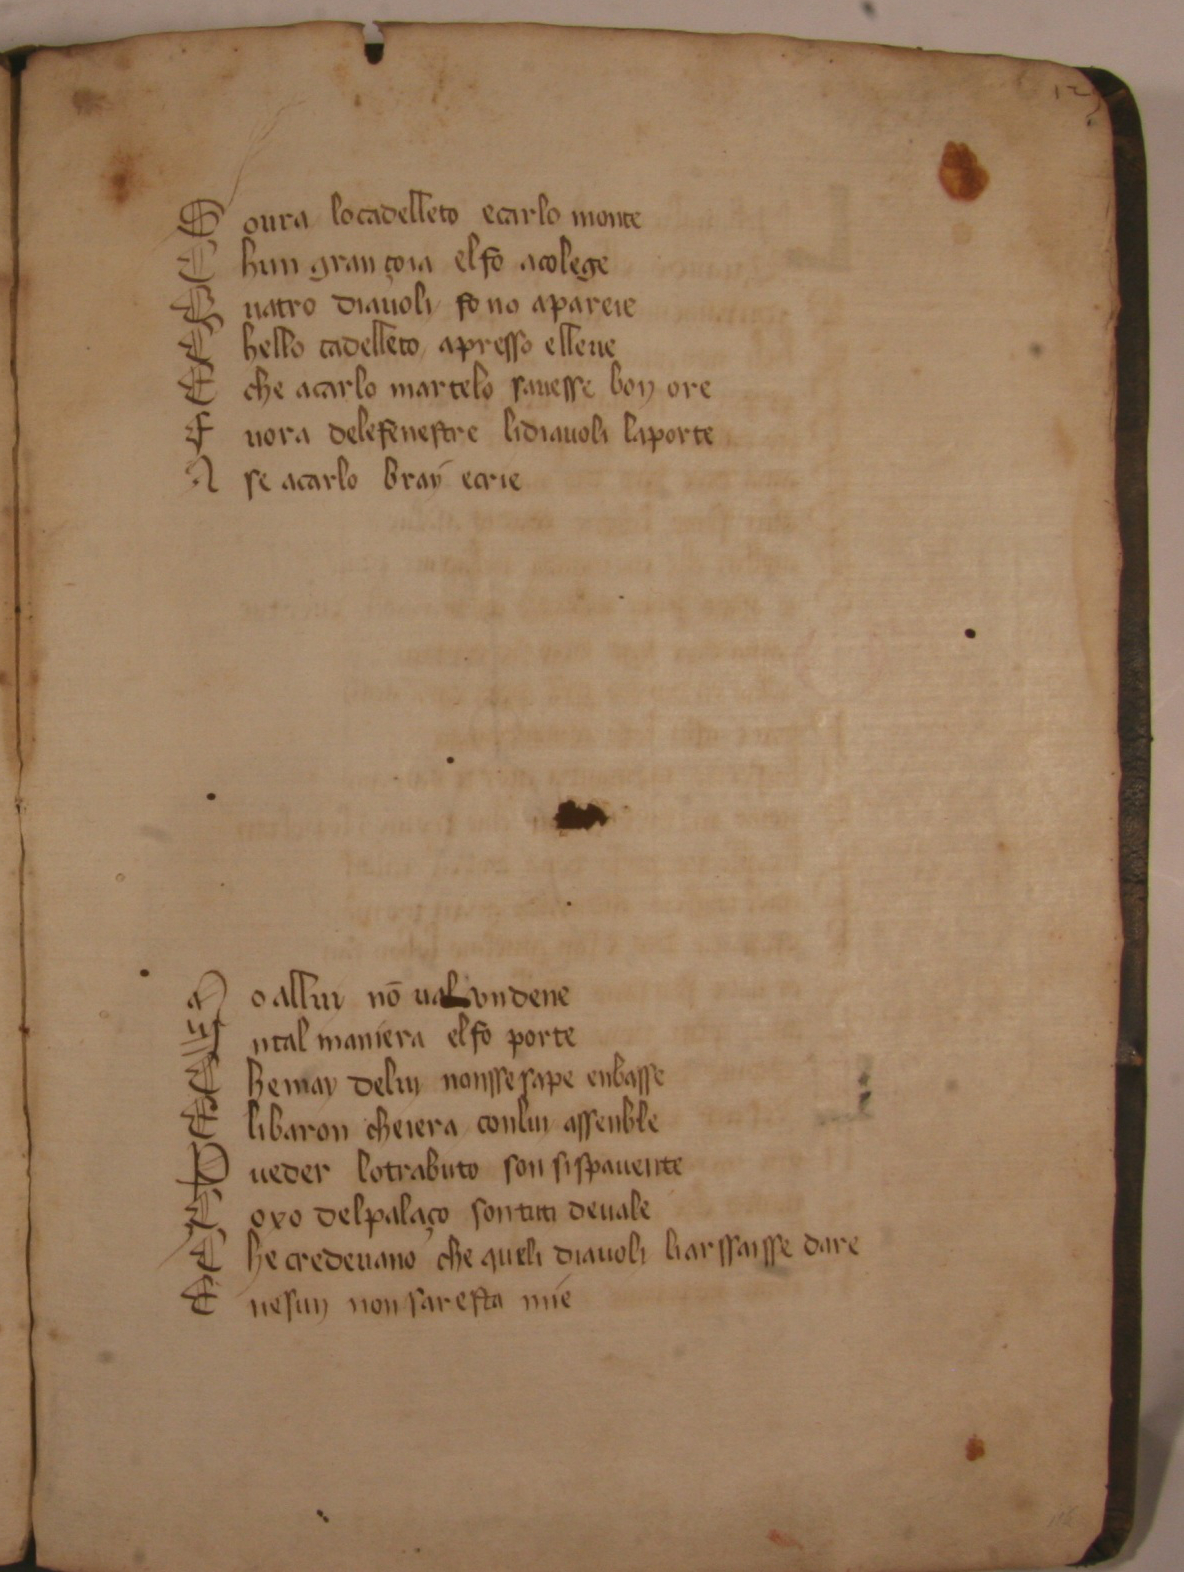 125
S oura locadelleto ecarlo monte
C hun gran çoia elfo acolege
Q uatro diauoli fono apareie
C hello cadelleto apresso elleue
E che acarlo martelo sauesse bon ore
F uora delefenestre lidiauoli laporte
A se acarlo bray ecrie
N o allui nō ual undene
In ntal maniera elfo porte
C hemay delui nonssesape enbasse
E libaron cheiera conlui assenble
P ueder lotrabuto son sispauente
Z oxo delpalaço sontuti deuale
C he credeuano che queli diauoli liarssaisse dare
E nesun non sar esta mie